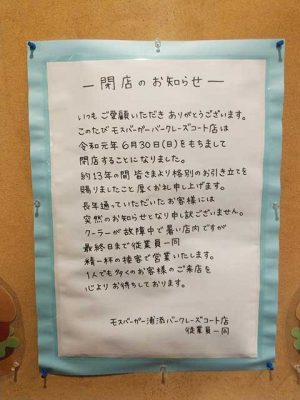 ―閉店のお知らせ―
いつもご愛顧いただきありがとうございます。
このたびモスバーガーバークレーズコート店は
令和元年6月30日(日)をもちまして
閉店することになりました。
約13年の間皆さまより格別のお引き立てを
賜りましたこと厚くお礼申し上げます。
長年通っていただいたお客様には
突然のお知らせとなり申し訳ございません。
クーラーが故障中で暑い店内ですが
最終日まで従業員一同
精一杯の接客で営業いたします。
1人でも多くのお客様のご来店を
心よりお待ちしております。
モスバーガー浦添バークレーズコート店
従業員一同